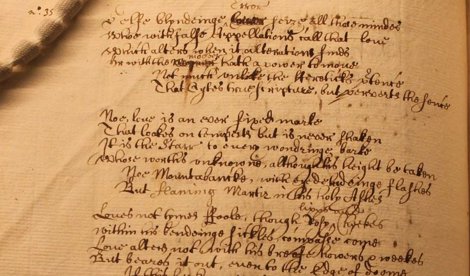 nº. 35
Error
Selfe blyndeinge Error seize all those mindes
Who with false Appellations call that love
Which alters when it alteration finds
Or with the mover hath a power to move
Not much unlike the Hereticks ptence
That Cytes true Scripture, but perverts the sence
Noe, love is an ever fixed marke
That lookes on tempests but is never shaken
It is the Starr to every wanderinge barke
Whose worths unknowne, although his height be taken
Noe Mountabancke, with eye deludeinge flashes
But flameing Martir in his holy Ashes
lipps and
Loves not tymes ffoole, though Rosy Cheekes
within his bendeinge sickles compasse come
Love alters not with his breife howers & weekes
But beares it out, even to the Edge of doome